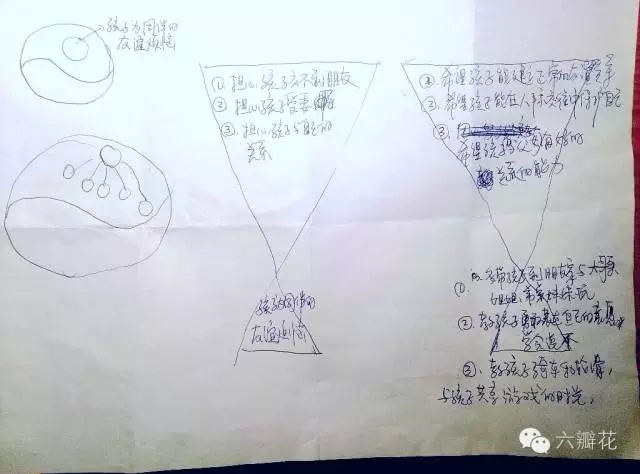 孩子与同伴的
友谊烦恼
① 担心孩子交不到朋友
② 担心孩子受委屈
③ 担心孩子与我的
关系
孩子与同伴的
友谊烦恼
① 希望孩子能建立
② 希望孩子能在人际交往中保护自己
③
希望孩子
关系的能力
① 多带孩子到朋友家与
姐姐, 弟弟妹妹玩
② 教孩子勇敢表达自己的意见
学会说不
③ 教孩子骑车和轮滑,
与孩子共享游戏的时光,
六瓣花